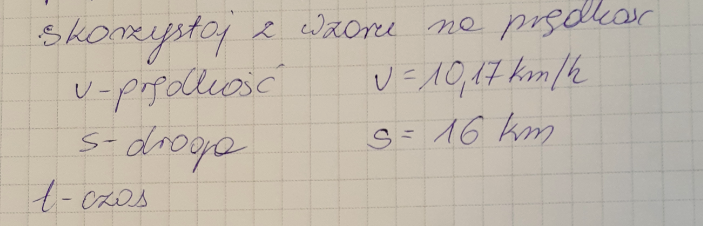 skorzystaj z wzoru na prędkość
v-prędkość v=10,17 km/h
s-droga s= 16 km
t-czas